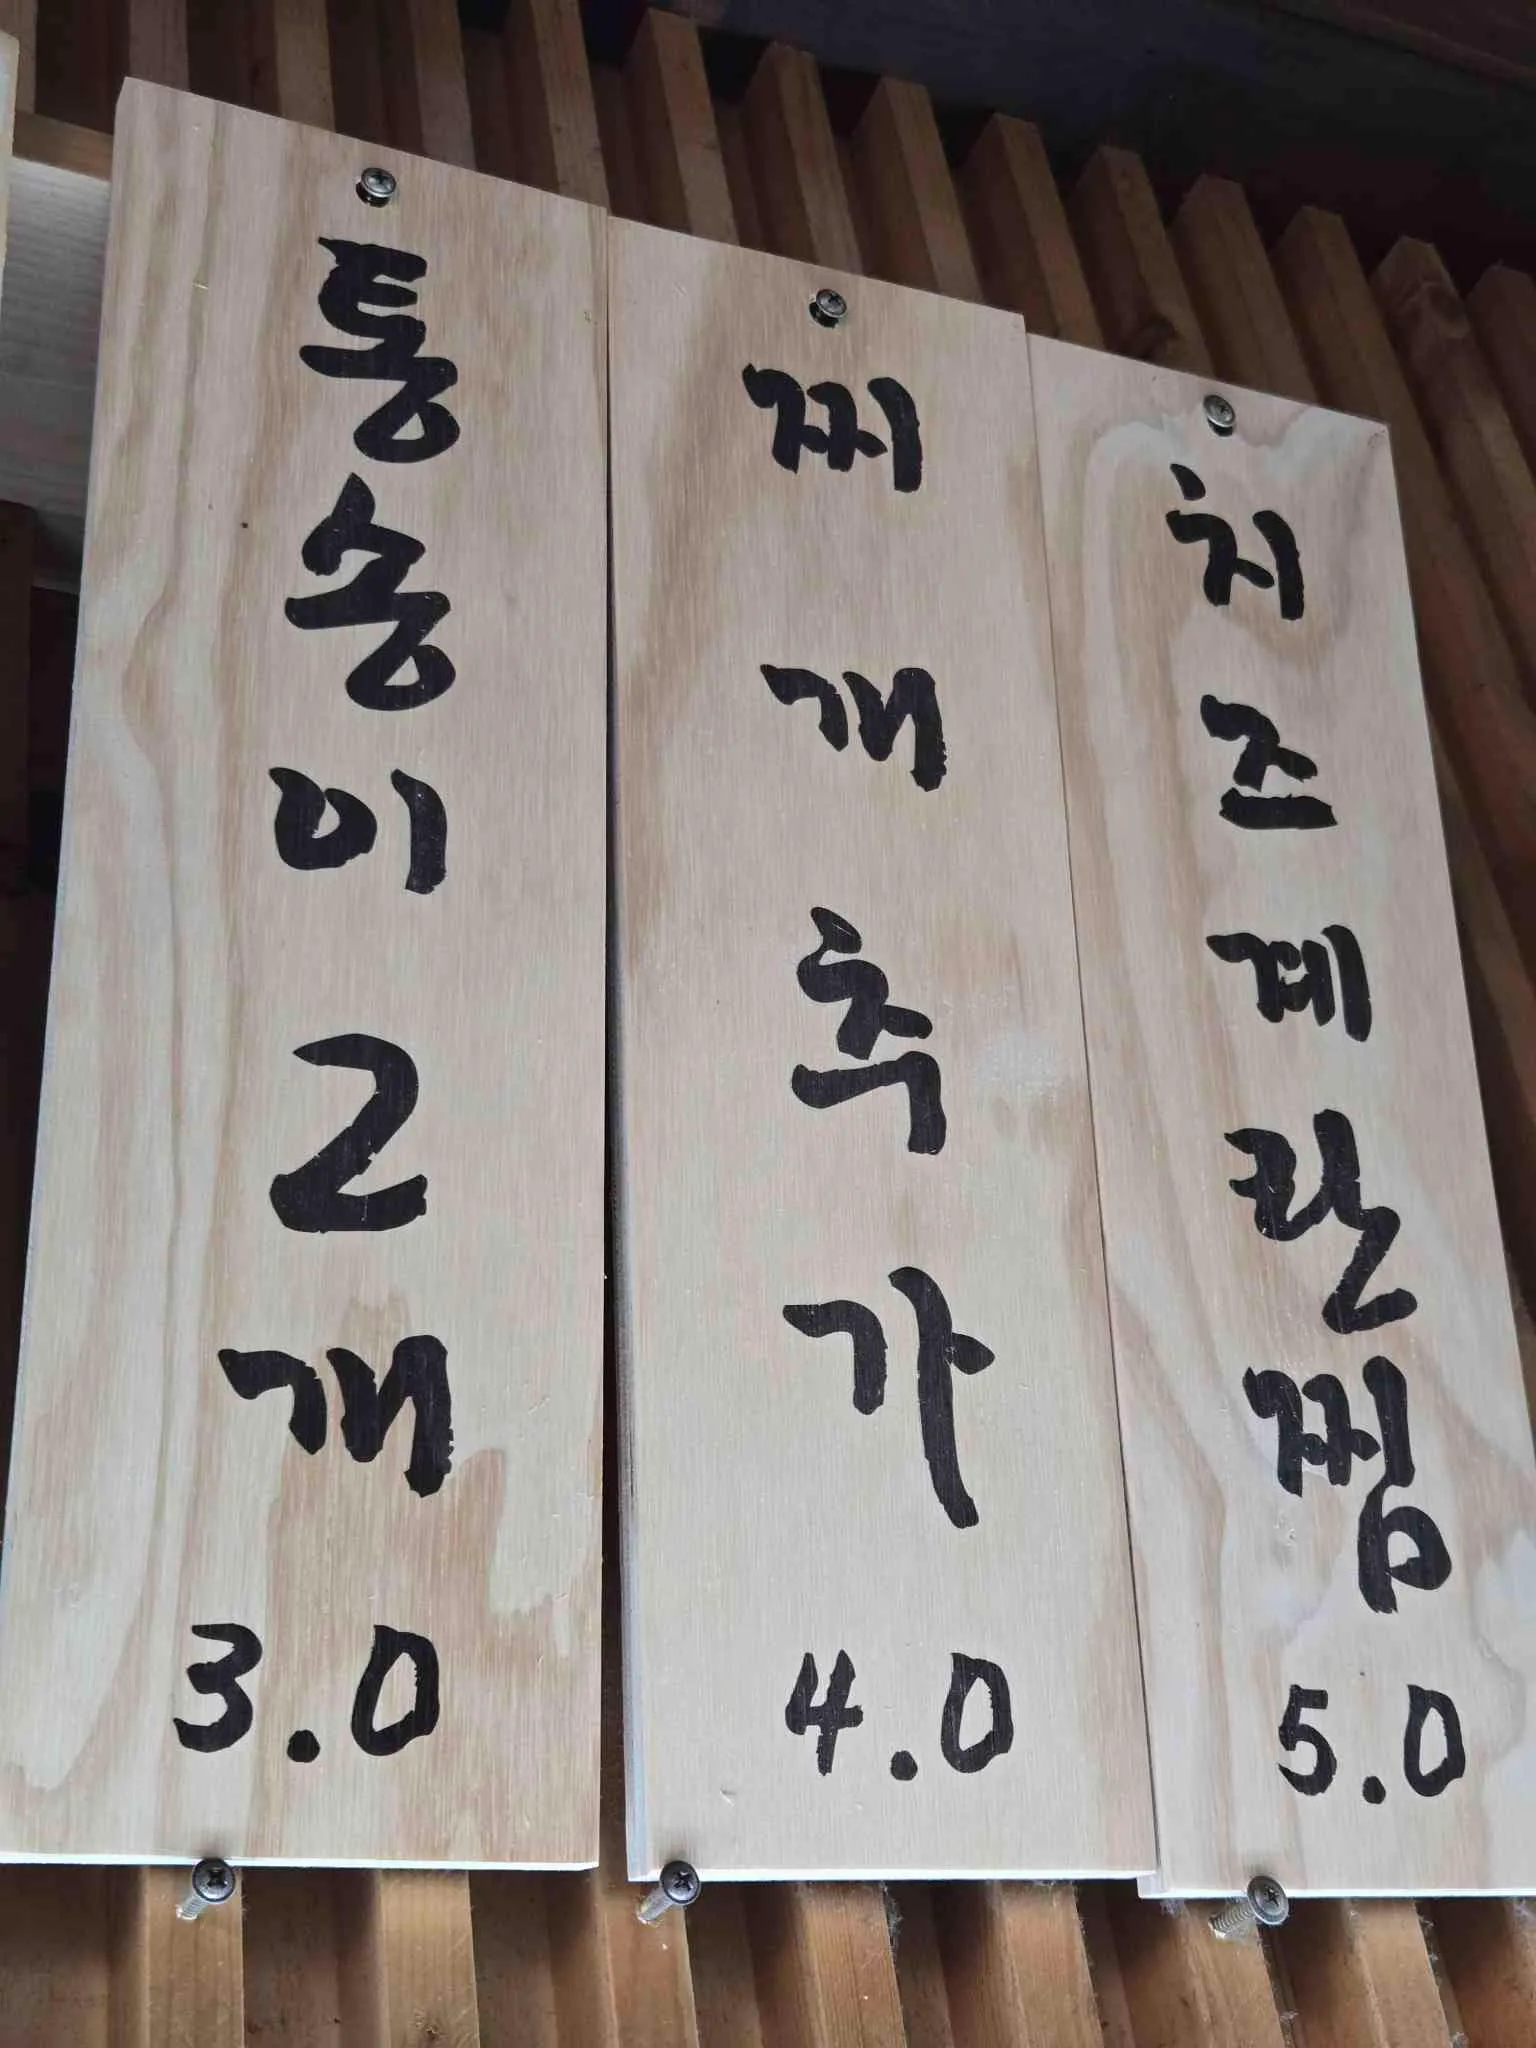 통송이2개
3.0
찌개추가
4.0
치즈계란찜
5.0